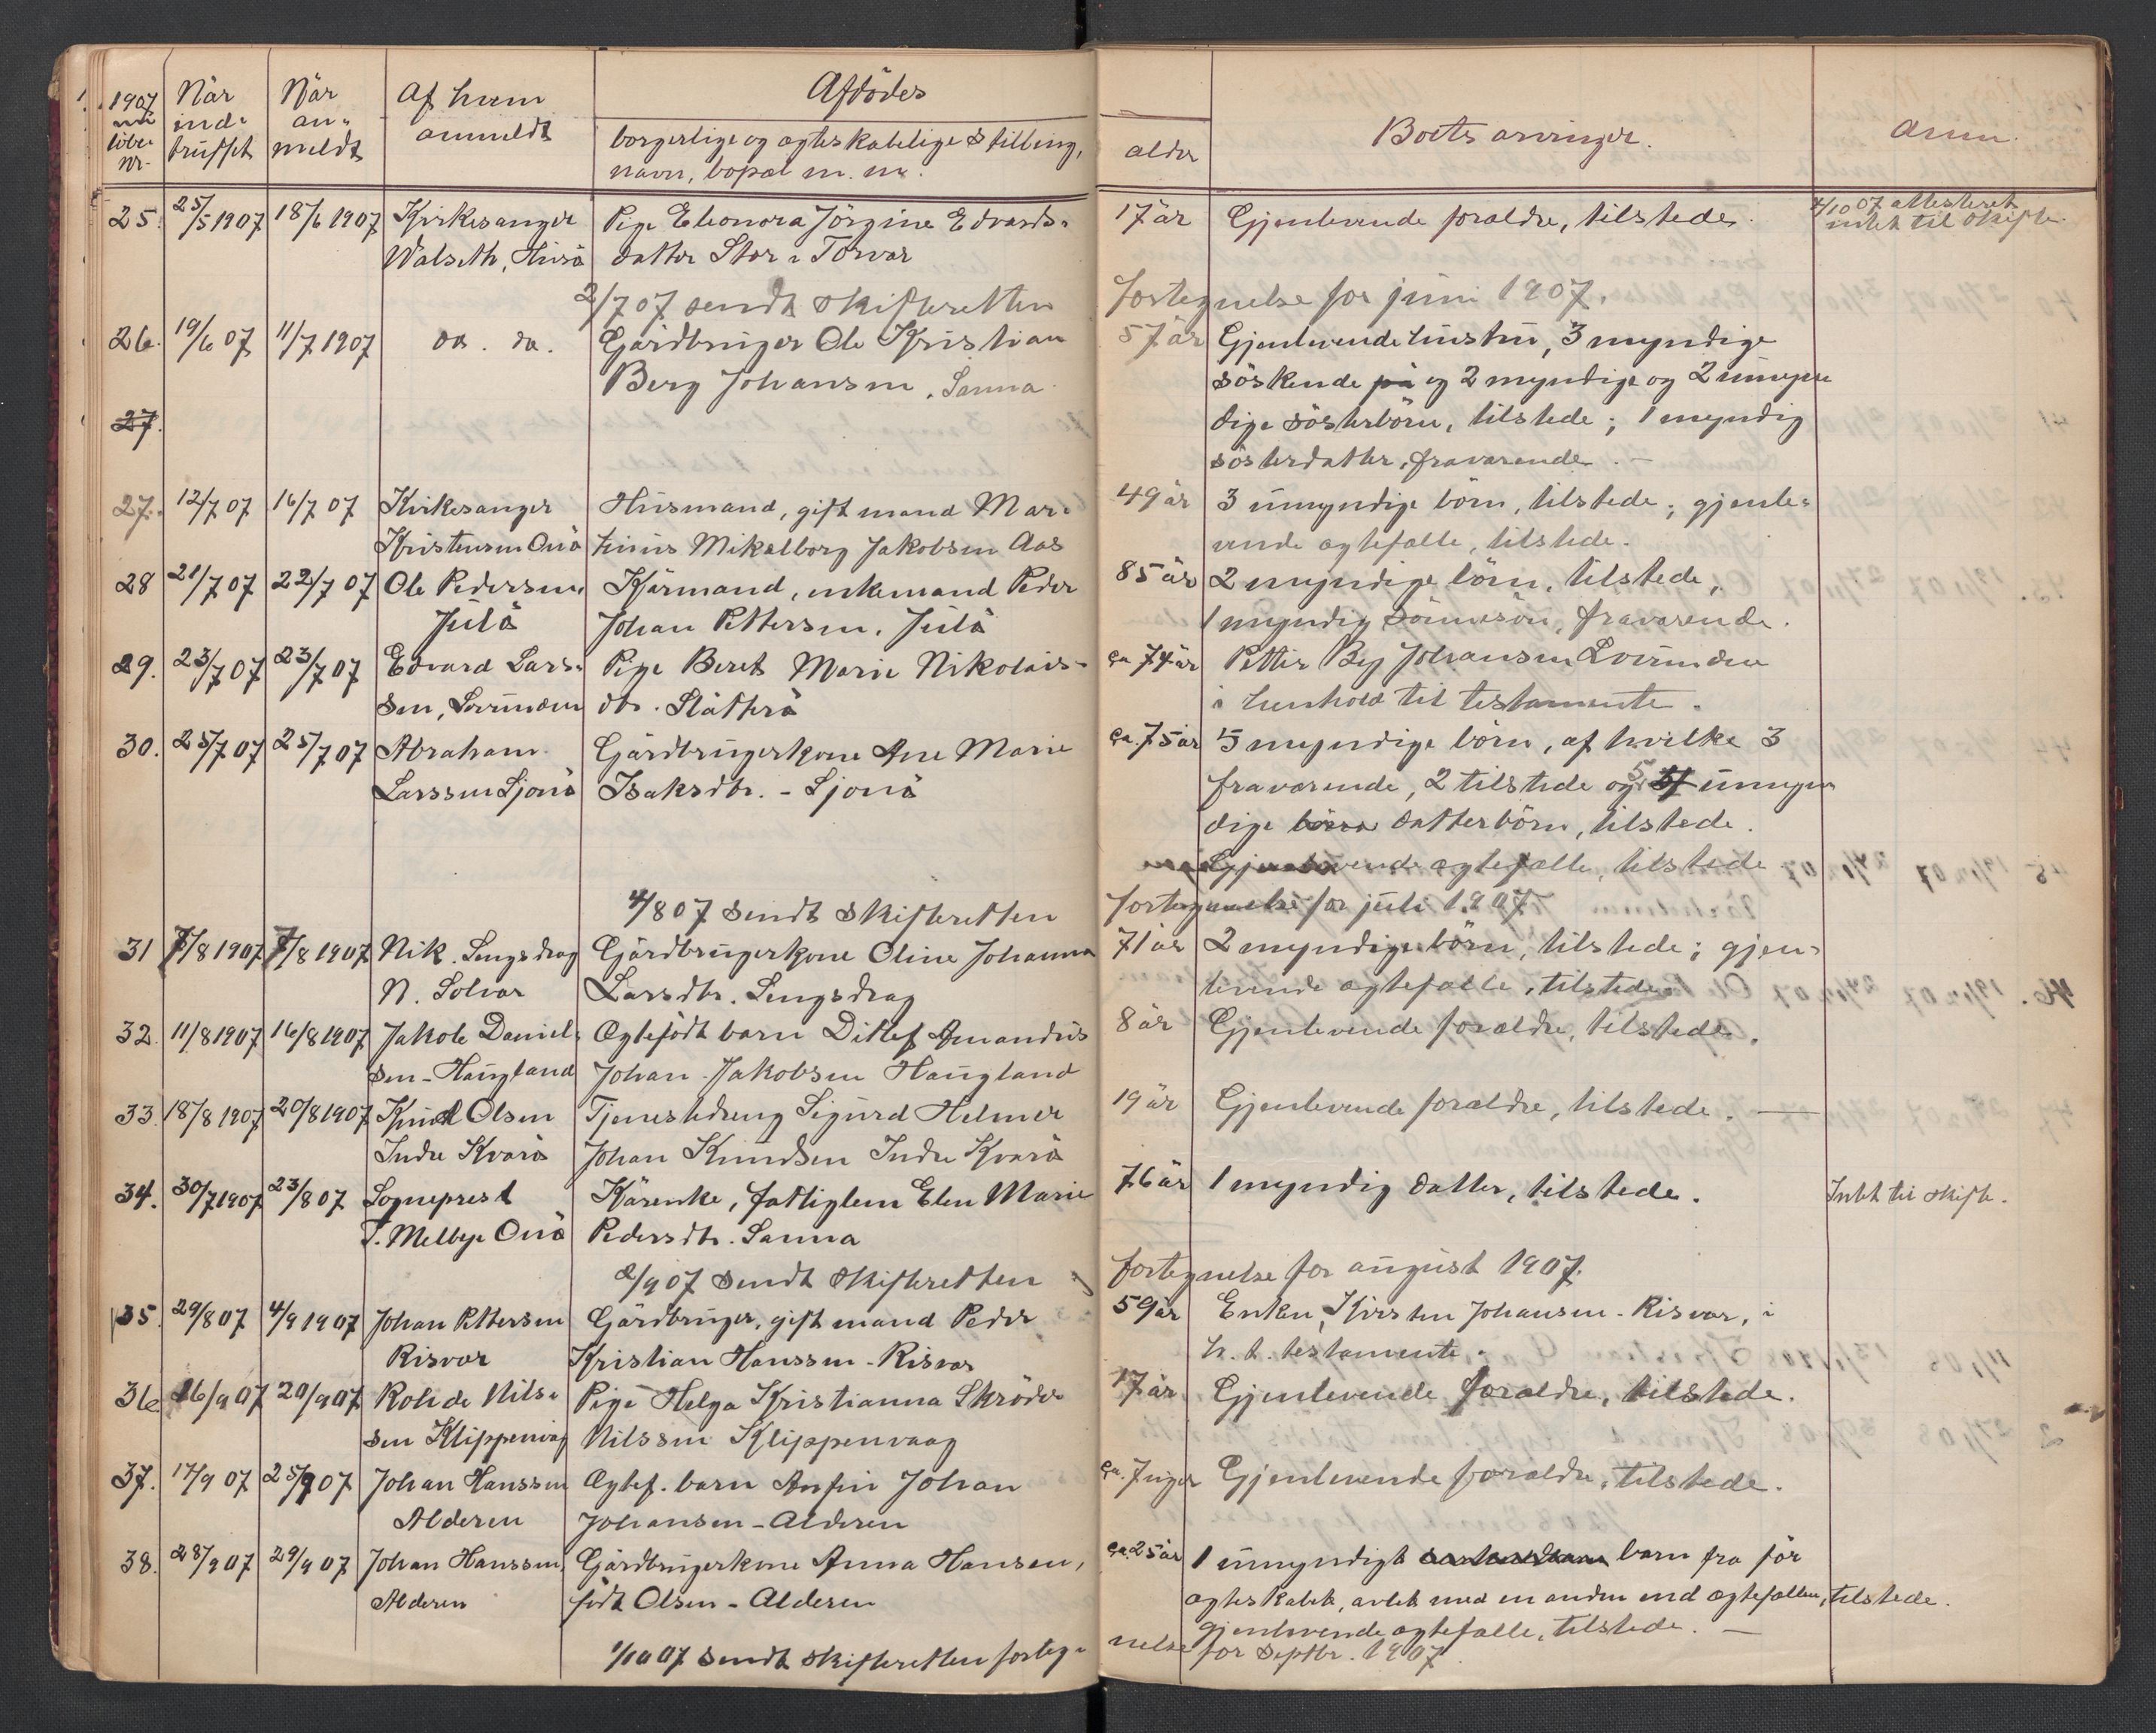 1907
löbe-
nr.
Når
ind-
truffet
Når
an-
meldt
Af hvem
anmeldt
Afdödes
borgerlige og ægteskabelige stilling,
navn, bopæl m. m.
alder
Boets arvinger.
Anm.
25. 25/5 1907 18/6 1907 Kirkesanger Pige Eleonora Jörgine Edvards- 17 år Gjenlevende forældre, tilstede. 4/10 07 attesteret
Walseth, Husö datter Stor-Torvær intet til skifte.
2/7 07 sendt skifteretten fortegnelse for juni 1907.
26. 19/6 07 11/7 1907 do. do. Gårdbruger Ole Kristian 57 år Gjenlevende hustru, 3 myndige
Berg Johansen, Sanna. söskende på og 2 myndige og 2 umyn
27. dige sösterbörn, tilstede; 1 myndig
sösterdatter, fraværende. —
27. 12/7 07 16/7 07 Kirkesanger Husmand, gift mand Mar- 49 år 3 umyndige börn, tilstede; gjenle-
Kristensen Onö tinus Mikalborg Jakobsen Aas vende ægtefælle, tilstede.
28 21/7 07 22/7 07 Ole Pedersen, Kårmand, enkemand Peder 85 år 2 myndige börn, tilstede,
Julö Johan Pettersen, Julö 1 myndig sönnesön, fraværende.
29. 23/7 07 23/7 07 Edvard Lars- Pige Beret Marie Nikolais- ca. 74 år Petter Bey Johansen Lovunden
sen, Lovunden dtr. Slåtterö i henhold til testamente.
30. 25/7 07 25/7 07 Abraham Gårdbrugerkone Ane Marie ca. 75 år 5 myndige börn, af hvilke 3
Larssen Sjonö Isaksdtr. - Sjonö fraværende, 2 tilstede og 5 umyn
dige börn datterbörn, tilstede.
Gjenlevende ægtefælle, tilstede
4/8 07 sendt skifteretten fortegnelse for juli 1907
31 7/8 1907 7/8 1907 Nik. Lengsdrag Gårdbrugerkone Oline Johanna 71 år 2 myndige börn, tilstede; gjen-
N. Solvær Larsdtr. Lengsdrag levende ægtefælle, tilstede.
32. 11/8 1907 16/8 1907 Jakob Daniel- Ægtefödt barn Ditlef Amandus 8 år Gjenlevende forældre, tilstede.
sen - Haugland Johan Jakobsen Haugland
33. 18/8 1907 20/8 1907 Knud Olsen Tjenestedreng Sigurd Helmer 19 år Gjenlevende forældre, tilstede. —
Indre Kvarö Johan Knudsen Indre Kvarö
34. 30/7 1907 23/8 07 Sogneprest Kårenke, fattiglem Elen Marie 76 år 1 myndig datter, tilstede. Intet til skifte.
T. Melbye Onö Pedersdtr. Sanna
2/9 07 sendt skifteretten fortegnelse for august 1907.
35. 29/8 07 4/9 1907 Johan Pettersen Gårdbruger, gift mand Peder 59 år Enken, Kirsten Johansen - Risvær, i
Risvær Kristian Hanssen - Risvær h. t. testamente.
36 16/9 07 20/9 07 Rolide Nils- Pige Helga Kristianna Skröder 17 år Gjenlevende forældre, tilstede.
sen Klippenvåg Nilssen Klippenvaag
37. 17/9 07 25/9 07 Johan Hanssen Ægtef. barn Anfin Johan ca. 7 uger Gjenlevende forældre, tilstede.
Alderen Johansen - Alderen
38. 28/9 07 29/9 07 Johan Hanssen, Gårdbrugerkone Anna Hansen, ca. 25 år 1 umyndigt barn fra för
Alderen födt Olsen - Alderen ægteskabet, avlet med en anden end ægtefællen, tilstede.
gjenlevende ægtefælle, tilstede. —
1/10 07 sendt skifteretten forteg- nelse for septbr. 1907.